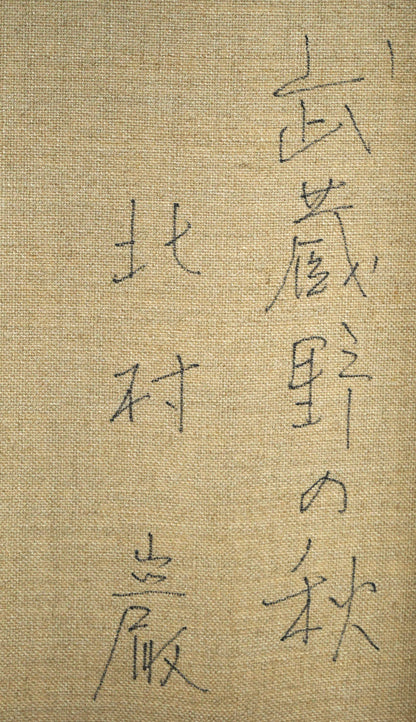 武蔵野の秋
北村 巖